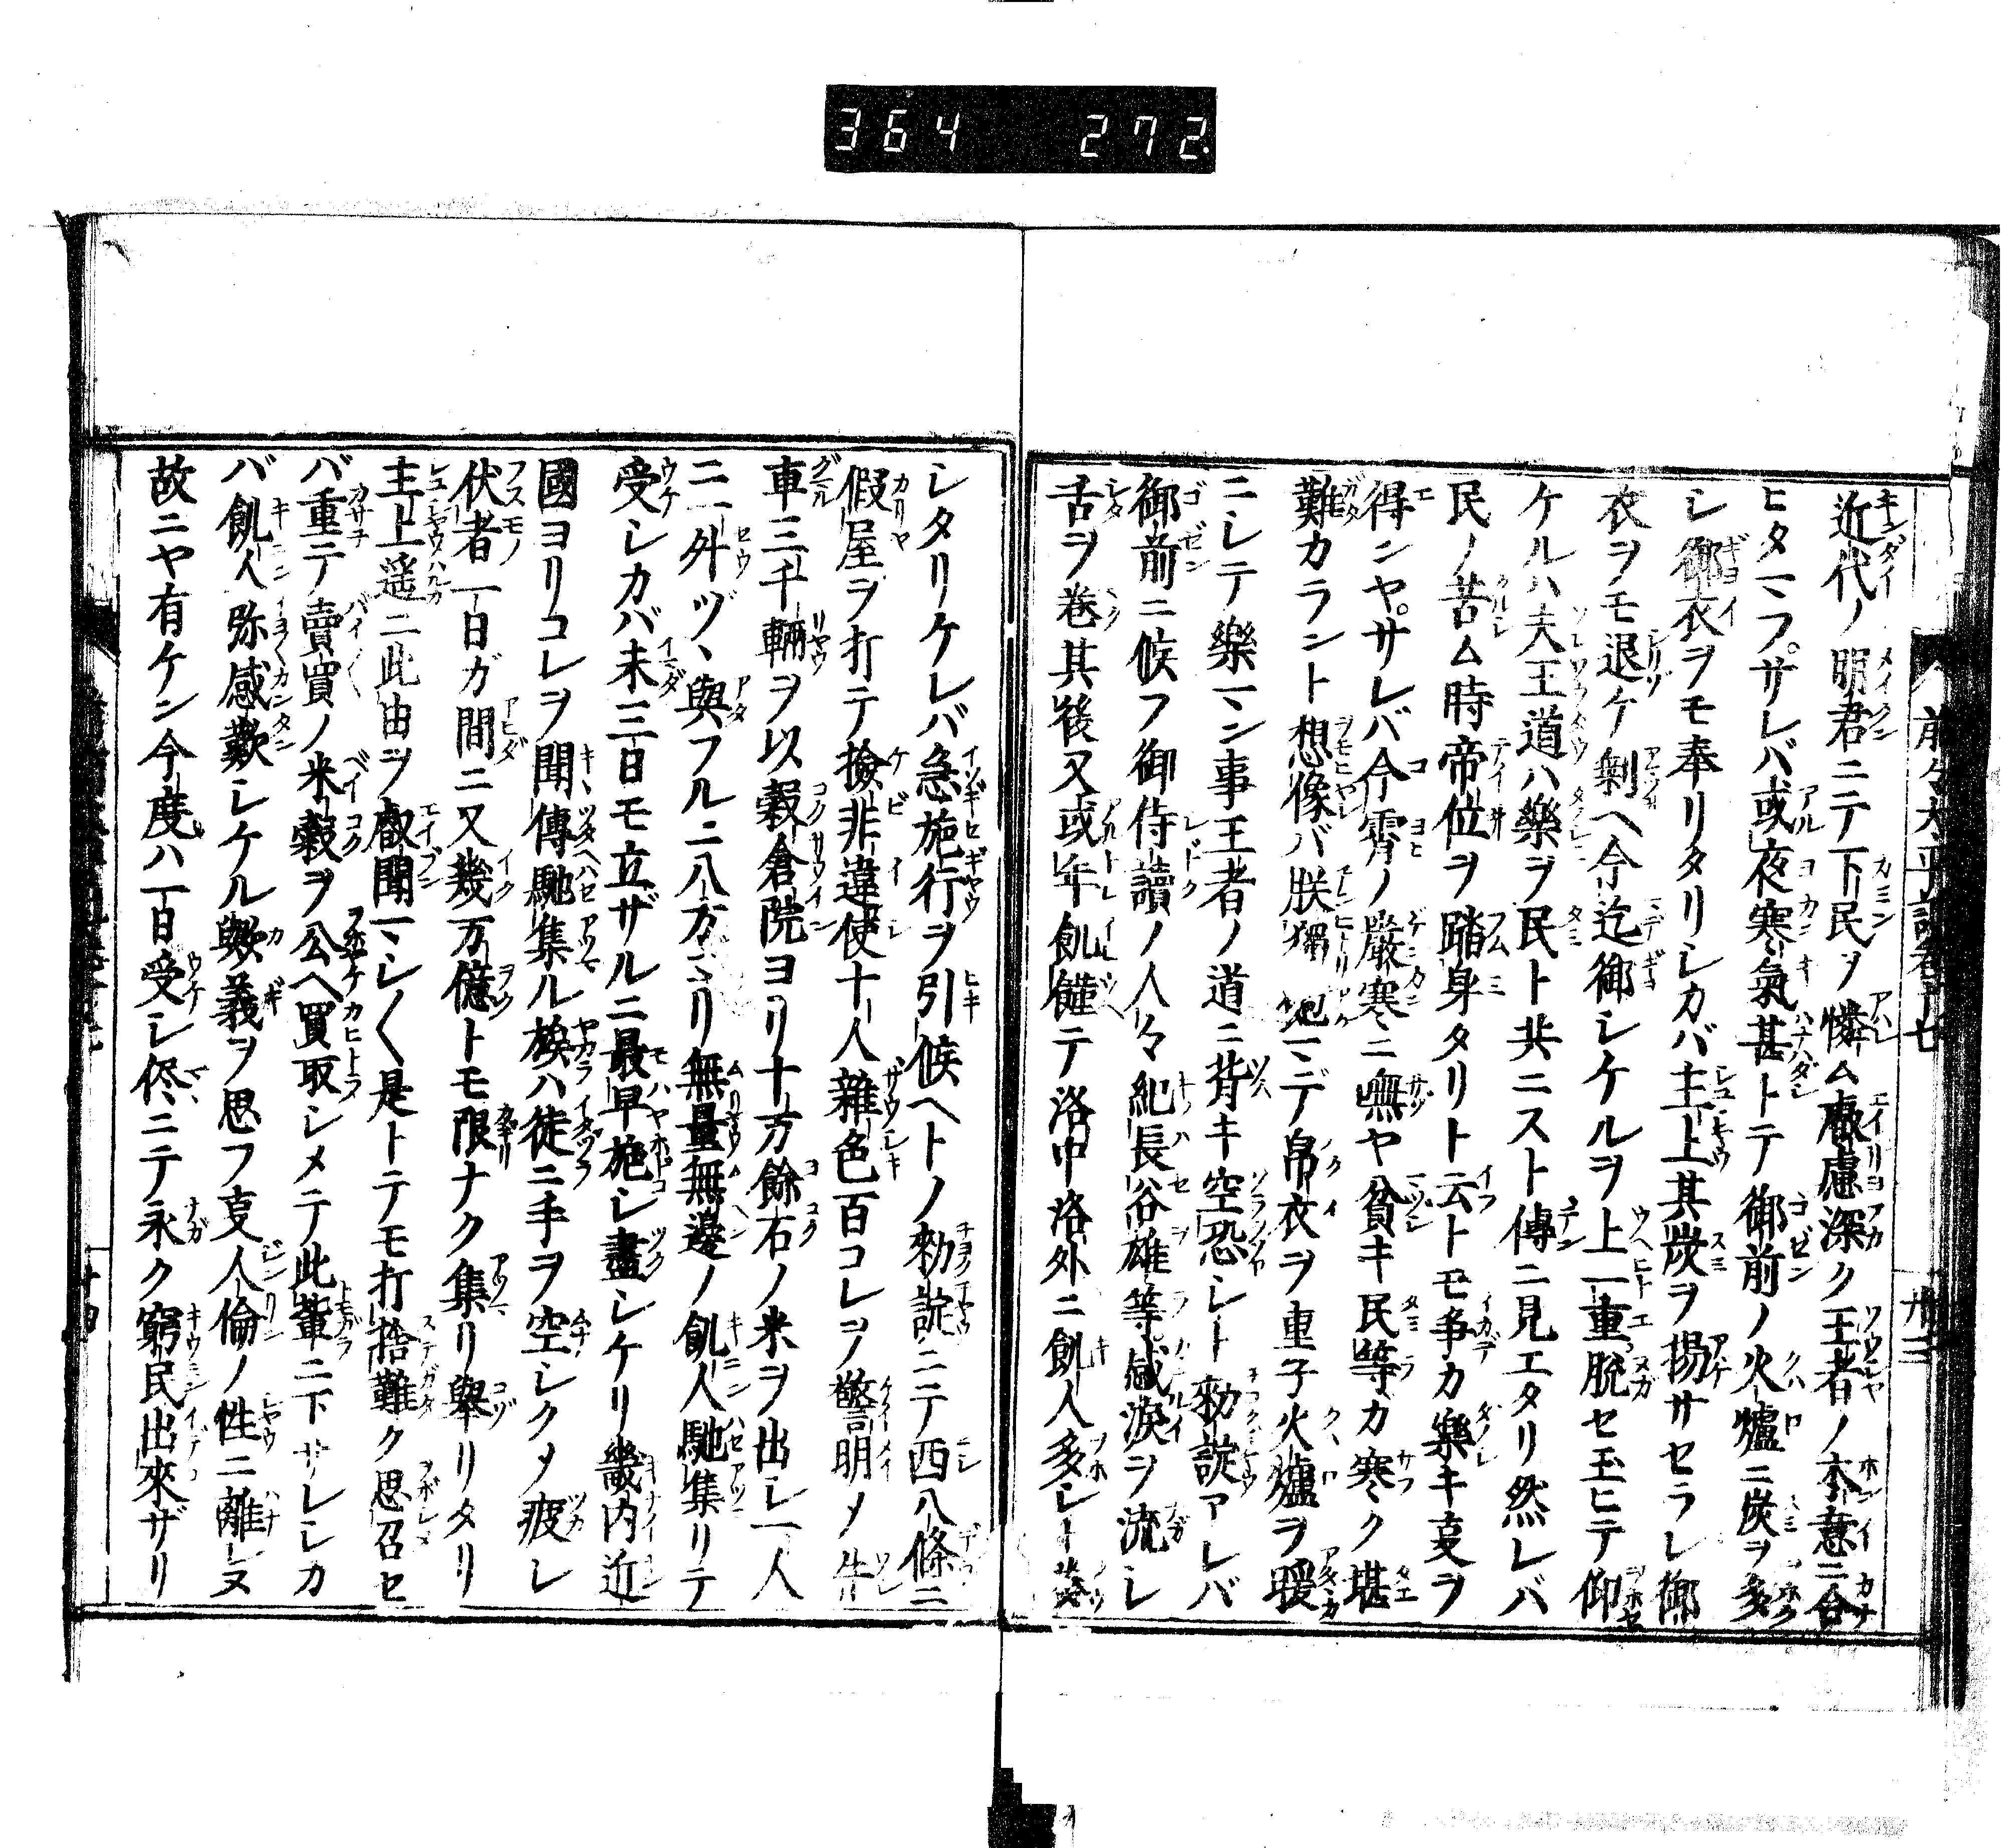 364 272
近代ノ明君ニテ下民ヲ憐ム叡慮深ク王者ノ本意ニ合
ヒタマフ。サレバ或夜寒氣甚トテ御前ノ火爐ニ炭ヲ多
シ御衣ヲモ奉リタリシカバ主上其炭ヲ揚サセラレ御
衣ヲモ退ケ剰ヘ今迄御シケルヲ上一重脱セ玉ヒテ仰
ケルハ夫王道ハ樂ヲ民ト共ニスト傳ニ見エタリ然レバ
民ノ苦ム時帝位ヲ踏身タリト云トモ争カ樂キ叓ヲ
得ンヤ。サレバ今霄ノ嚴寒ニ嘸ヤ貧キ民等カ寒ク堪
難カラント想像バ朕獨マデ帛衣ヲ重子火爐ヲ暖
ニシテ樂マン事王者ノ道ニ背キ空恐シト勅諚アレバ
御前ニ候フ御侍讀ノ人々紀長谷雄等感淚ヲ流シ
舌ヲ卷其後又或年飢饉テ洛中洛外ニ飢人多シト
シタリケレバ急施行ヲ引候ヘトノ勅諚ニテ西八條ニ
假屋ヲ打テ撿非違使十人雜色百コレヲ警明メ牛
車三千輛ヲ以穀倉院ヨリ十万餘石ノ米ヲ出シ一人
ニ一舛ヅヽ與フルニ八方ヨリ無量無邊ノ飢人馳集リテ
受シカバ未三日モ立ザルニ最早施シ盡シケリ畿内近
國ヨリコレヲ聞傳馳集ル族ハ徒ニ手ヲ空シクメ疲レ
伏者一日ガ間ニ又幾万億トモ限ナク集リ舉リタリ
主上遥ニ此由ヲ叡聞マシ〱是トテモ打捨難ク思召セ
バ重テ賣買ノ米穀ヲ公ヘ買取シメテ此輩ニ下サレシカ
バ飢人弥感歎シケル歟義ヲ思フ叓人倫ノ性ニ離レヌ
故ニヤ有ケン今度ハ一日受シ侭ニテ永ク窮民出來ザリ